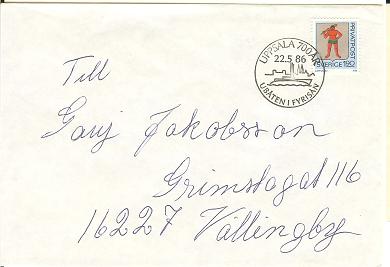 UPPSALA 700 ÅR
22.5 86
UBÅTEN I FYRISÅN
PRIVATPOST
SVERIGE 1.80
Till
Gary Jakobsson
Grimstagat 116
16227 Vällingby